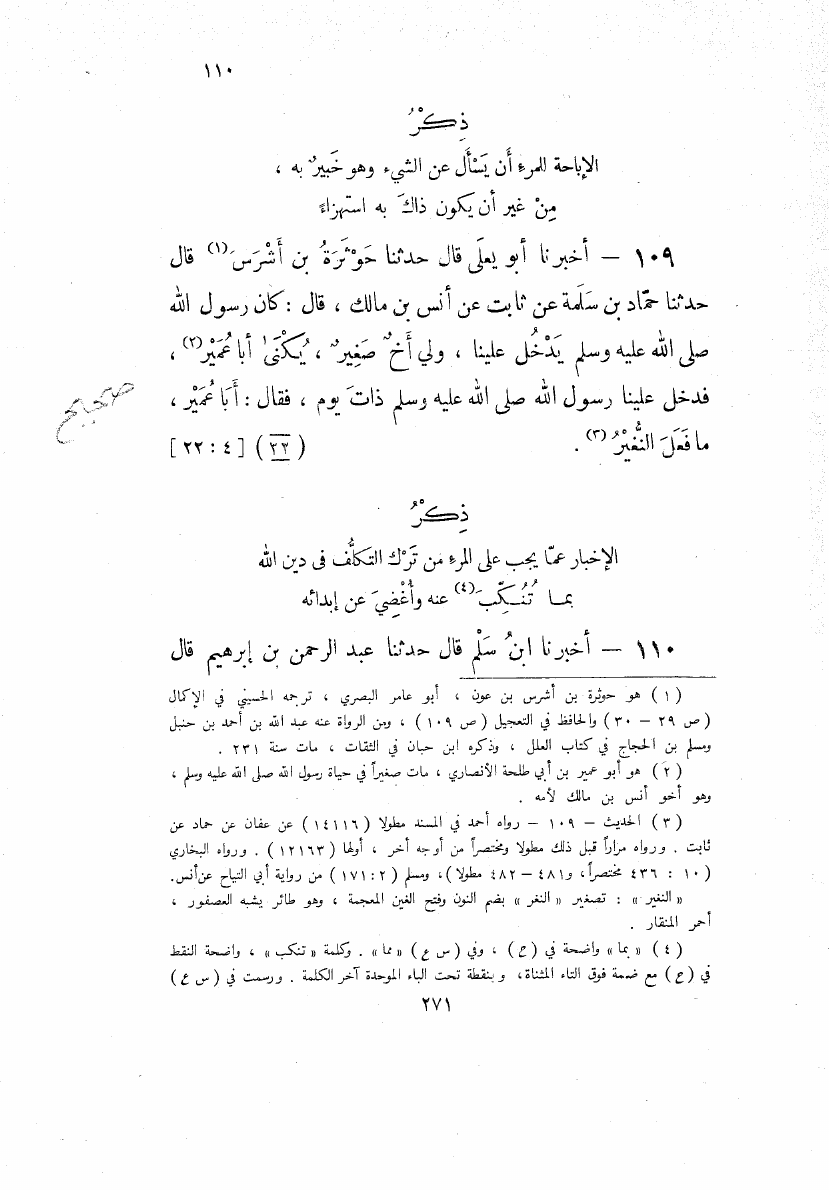 ١١٠
ذِكْرُ
الإباحة للمرءِ أَن يَسْأَل عن الشيء وهو خَبيرٌ به ،
مِنْ غير أن يكون ذاكَ به استهزاءً
١٠٩ — أخبرنا أبو يعلَى قال حدثنا حَوْثَرَةُ بن أَشْرَسَ(١) قال
حدثنا حمّاد بن سَلَمة عن ثابت عن أنس بن مالك ، قال : كان رسول الله
صلى الله عليه وسلم يَدْخُل علينا ، ولي أَخٌ صَغِيرٌ ، يُكْنَىٰ أبا عُمَيْرٍ(٢) ،
فدخل علينا رسول الله صلى الله عليه وسلم ذاتَ يوم ، فقال : أَبَا عُمَيْر ،
صحيح
ما فَعَلَ النُّغَيْرُ(٣) . (٢٢) [٤ : ٢٢]
ذِكْرُ
الإخبار عمّا يجب على المرءِ من تَرْك التكلُّف فى دين الله
بمـا تُنُـكِّبَ(٤) عنه وأُغْضِيَ عن إبدائه
١١٠ — أخبرنا ابنُ سَلْم قال حدثنا عبد الرحمن بن إبرهيم قال
(١) هو حوثرة بن أشرس بن عون ، أبو عامر البصري ، ترجمه الحسيني في الإكمال
(ص ٢٩ – ٣٠) والحافظ في التعجيل (ص ١٠٩) ، ومن الرواة عنه عبد الله بن أحمد بن حنبل
ومسلم بن الحجاج في كتاب العلل ، وذكره ابن حبان في الثقات ، مات سنة ٢٣١ .
(٢) هو أبو عمير بن أبي طلحة الأنصاري ، مات صغيراً في حياة رسول الله صلى الله عليه وسلم ،
وهو أخو أنس بن مالك لأمه .
(٣) الحديث – ١٠٩ – رواه أحمد في المسند مطولا (١٤١١٦) عن عفان عن حماد عن
ثابت . ورواه مراراً قبل ذلك مطولا ومختصراً من أوجه أخر ، أولها (١٢١٦٣) . ورواه البخاري
(١٠ : ٤٣٦ مختصراً، و٤٨١ – ٤٨٢ مطولا)، ومسلم (٢ : ١٧١) من رواية أبي التياح عن أنس.
«النغير» : تصغير «النغر» بضم النون وفتح الغين المعجمة ، وهو طائر يشبه العصفور ،
أحمر المنقار .
(٤) «بما» واضحة في (ح) ، وفي (س ع) «مما» . وكلمة «تنكب» ، واضحة النقط
في (ح) مع ضمة فوق التاء المثناة، وبنقطة تحت الباء الموحدة آخر الكلمة . ورسمت في (س ع)
٢٧١